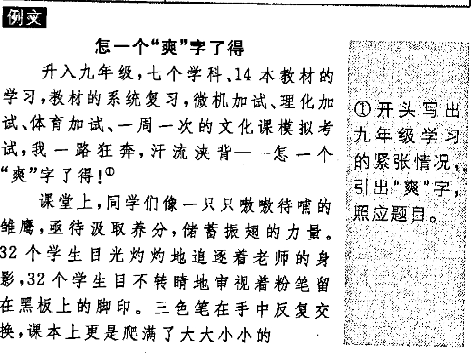 例文
怎一个“爽”字了得
升入九年级,七个学科、14本教材的
学习,教材的系统复习,微机加试、理化加
试、体育加试、一周一次的文化课模拟考
试,我一路狂奔,汗流浃背——怎一个
“爽”字了得!①
课堂上,同学们像一只只嗷嗷待哺的
雏鹰,亟待汲取养分,储蓄振翅的力量。
32个学生目光灼灼地追逐着老师的身
影,32个学生目不转睛地审视着粉笔留
在黑板上的脚印。三色笔在手中反复交
换,课本上更是爬满了大大小小的
①开头写出
九年级学习
的紧张情况,
引出“爽”字,
照应题目。